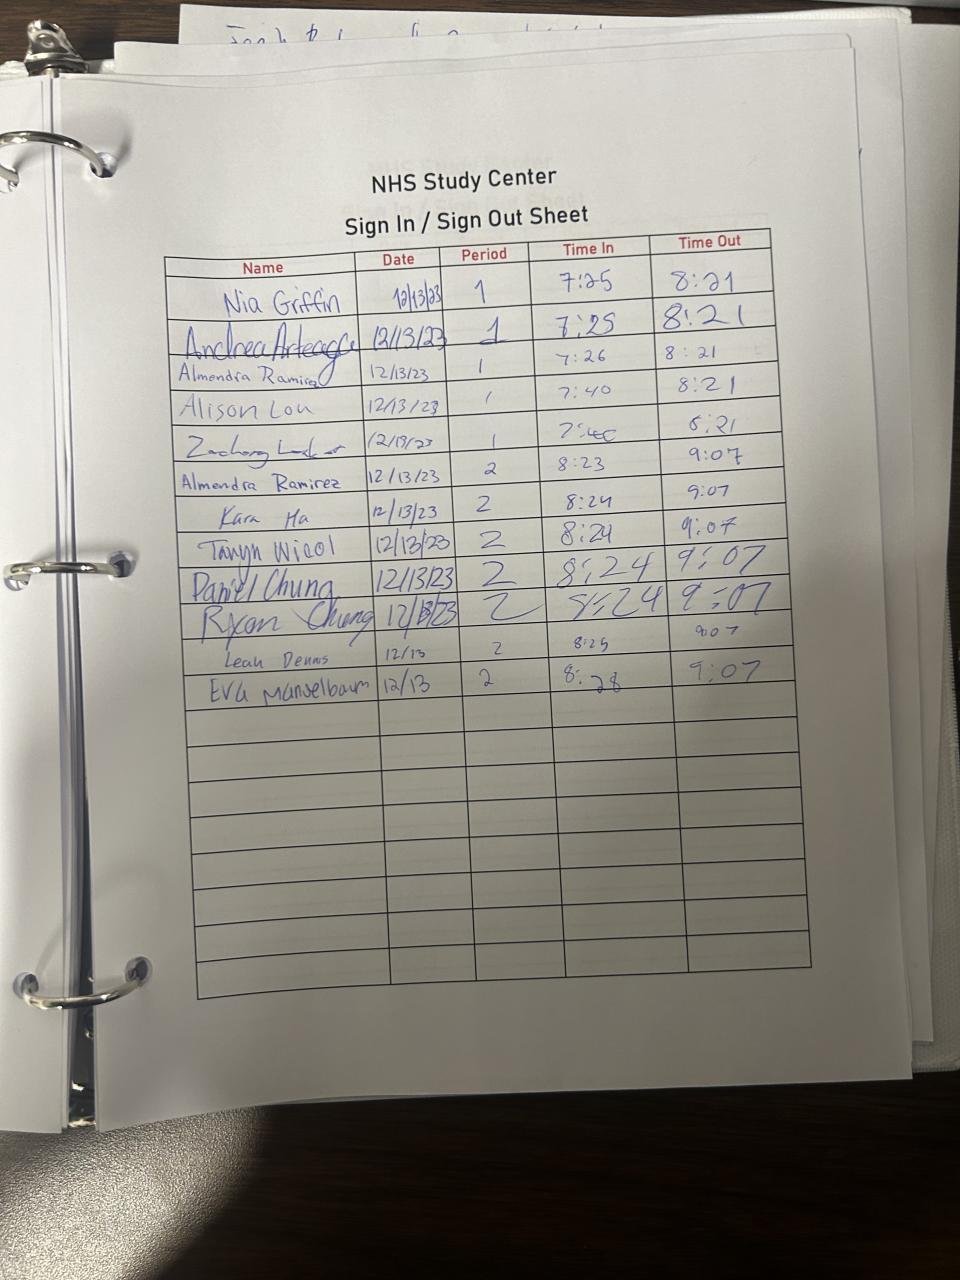 NHS Study Center
Sign In / Sign Out Sheet
Name Date Period Time In Time Out
Nia Griffin 12/13/23 1 7:25 8:21
Andrea Arteaga 12/13/23 1 7:25 8:21
Almendra Ramirez 12/13/23 1 7:26 8:21
Alison Lou 12/13/23 1 7:40 8:21
Zachary 1 8:21
Almendra Ramirez 12/13/23 2 8:23 9:07
Kara Ha 12/13/23 2 8:24 9:07
Taryn Nicol 12/13/23 2 8:24 9:07
Daniel Chung 12/13/23 2 8:24 9:07
Ryan Chung 12/13/23 2 8:24 9:07
Leah Dennis 12/13 2 8:25 9:07
Eva Manselbaum 12/13 2 8:28 9:07